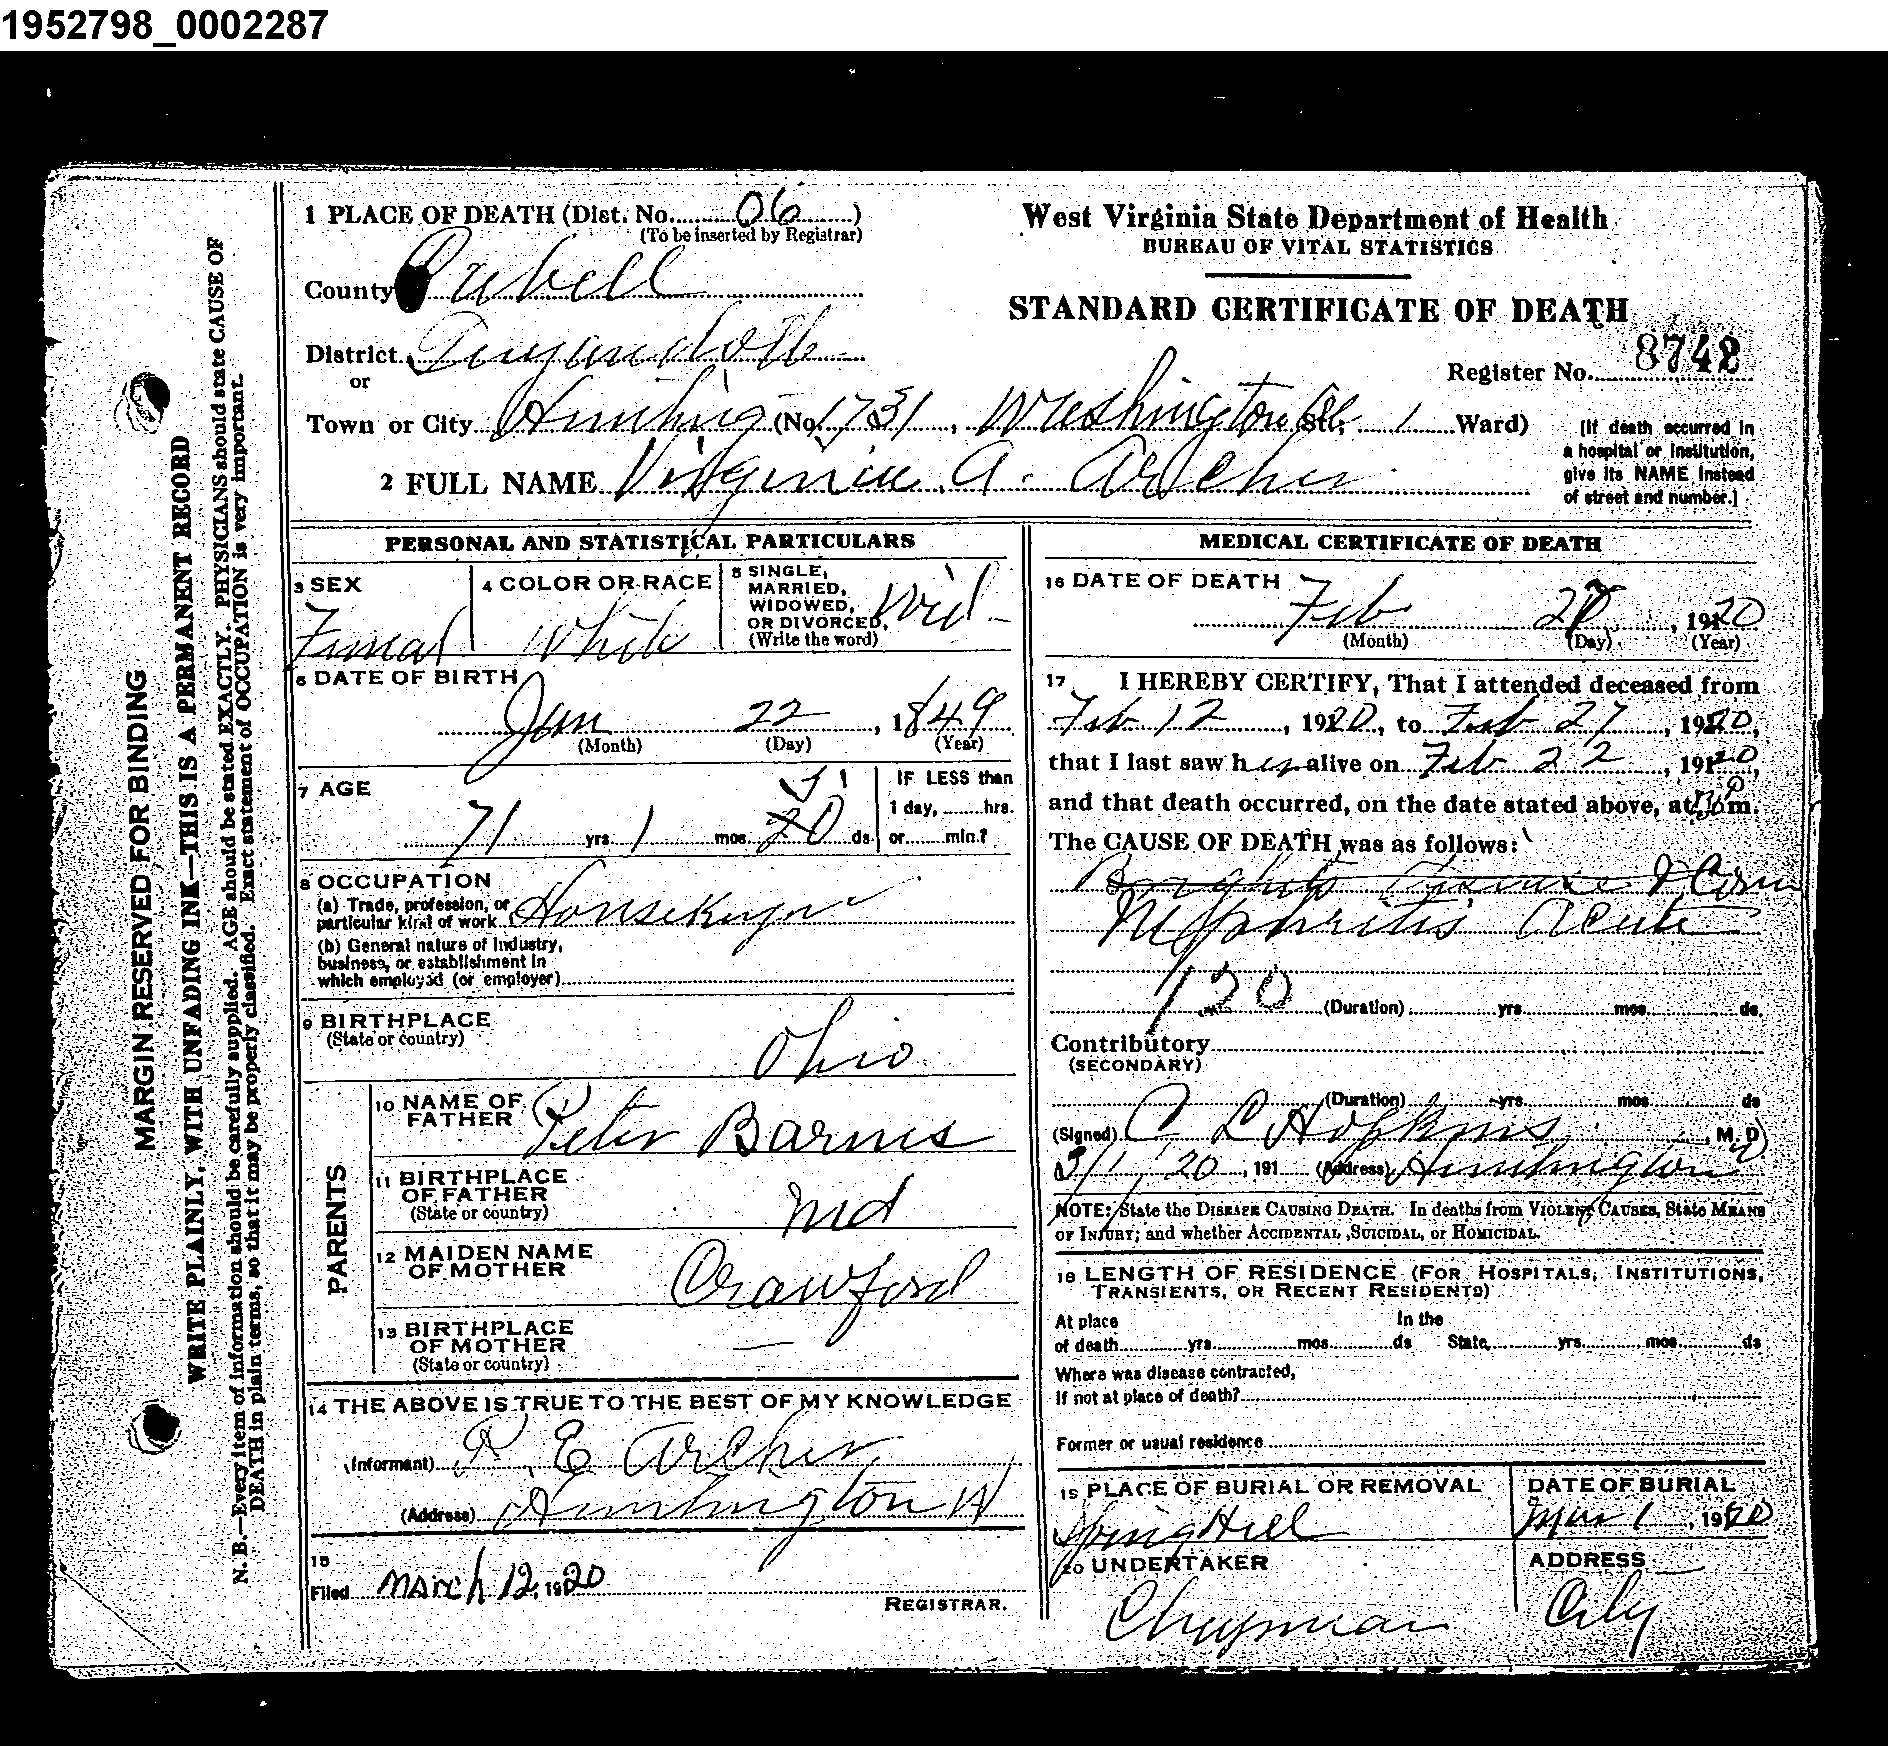 1952798_0002287
1 PLACE OF DEATH (Dist. No. 06 )
(To be inserted by Registrar)
County Cabell
District Guyandotte
or
Town or City Hunting (No 1731, Washington St; 1 Ward)
2 FULL NAME Virginia A. Archer
West Virginia State Department of Health
BUREAU OF VITAL STATISTICS
STANDARD CERTIFICATE OF DEATH
Register No. 8742
[If death occurred in
a hospital or institution,
give its NAME instead
of street and number.]
PERSONAL AND STATISTICAL PARTICULARS
3 SEX
Femal
4 COLOR OR RACE
White
5 SINGLE,
MARRIED,
WIDOWED,
OR DIVORCED,
(Write the word)
Wid
6 DATE OF BIRTH
Jan 22, 1849
(Month) (Day) (Year)
7 AGE
71 yrs 1 mos ds
IF LESS than
1 day, hrs.
or min.?
8 OCCUPATION
(a) Trade, profession, or
particular kind of work Housekeeper
(b) General nature of industry,
business, or establishment in
which employed (or employer)
9 BIRTHPLACE
(State or country)
Ohio
PARENTS
10 NAME OF
FATHER
Peter Barnes
11 BIRTHPLACE
OF FATHER
(State or country)
Md
12 MAIDEN NAME
OF MOTHER
Crawford
13 BIRTHPLACE
OF MOTHER
(State or country)
—
14 THE ABOVE IS TRUE TO THE BEST OF MY KNOWLEDGE
(Informant) R. E Archer
(Address) Huntington W
15
Filed March 12, 1920
REGISTRAR.
MEDICAL CERTIFICATE OF DEATH
16 DATE OF DEATH
Feb 27, 1920
(Month) (Day) (Year)
17 I HEREBY CERTIFY, That I attended deceased from
Feb 12, 1920, to Feb 27, 1920,
that I last saw her alive on Feb 22, 1920,
and that death occurred, on the date stated above, at m.
The CAUSE OF DEATH was as follows:
Brights Disease
Nephritis Acute
120 (Duration) yrs mos ds.
Contributory
(SECONDARY)
(Duration) yrs mos ds
(Signed) C L Hopkins, M. D
3/1, 20, 191 (Address) Huntington
NOTE: State the DISEASE CAUSING DEATH. In deaths from VIOLENT CAUSES, State MEANS
OF INJURY; and whether ACCIDENTAL, SUICIDAL, or HOMICIDAL.
18 LENGTH OF RESIDENCE (FOR HOSPITALS, INSTITUTIONS,
TRANSIENTS, OR RECENT RESIDENTS)
At place In the
of death yrs mos ds State yrs mos ds
Where was disease contracted,
If not at place of death?
Former or usual residence
19 PLACE OF BURIAL OR REMOVAL
Spring Hill
DATE OF BURIAL
Mar 1, 1920
20 UNDERTAKER
Chapman
ADDRESS
City
MARGIN RESERVED FOR BINDING
WRITE PLAINLY, WITH UNFADING INK—THIS IS A PERMANENT RECORD
N. B.—Every item of information should be carefully supplied. AGE should be stated EXACTLY. PHYSICIANS should state CAUSE OF
DEATH in plain terms, so that it may be properly classified. Exact statement of OCCUPATION is very important.